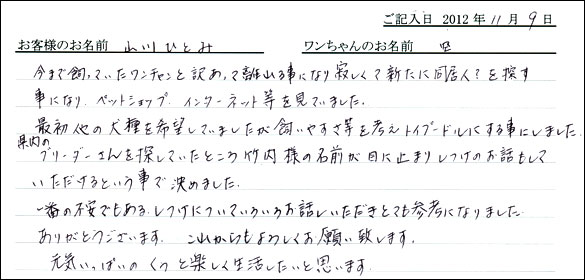 ご記入日 2012年11月9日
お客様のお名前 山川ひとみ ワンちゃんのお名前 空
今まで飼っていたワンチャンと訳あって離れる事になり寂しくて新たに同居人?を探す
事になり、ペットショップ、インターネット等を見ていました。
最初他の犬種を希望していましたが飼いやすさ等を考えトイプードルにする事にしました。
県内のブリーダーさんを探していたところ竹内様の名前が目に止まりしつけのお話もして
いただけるという事で決めました。
一番の不安でもある、しつけについていろいろお話しいただきとても参考になりました。
ありがとうございます。これからもよろしくお願い致します。
元気いっぱいの くうと楽しく生活したいと思います。